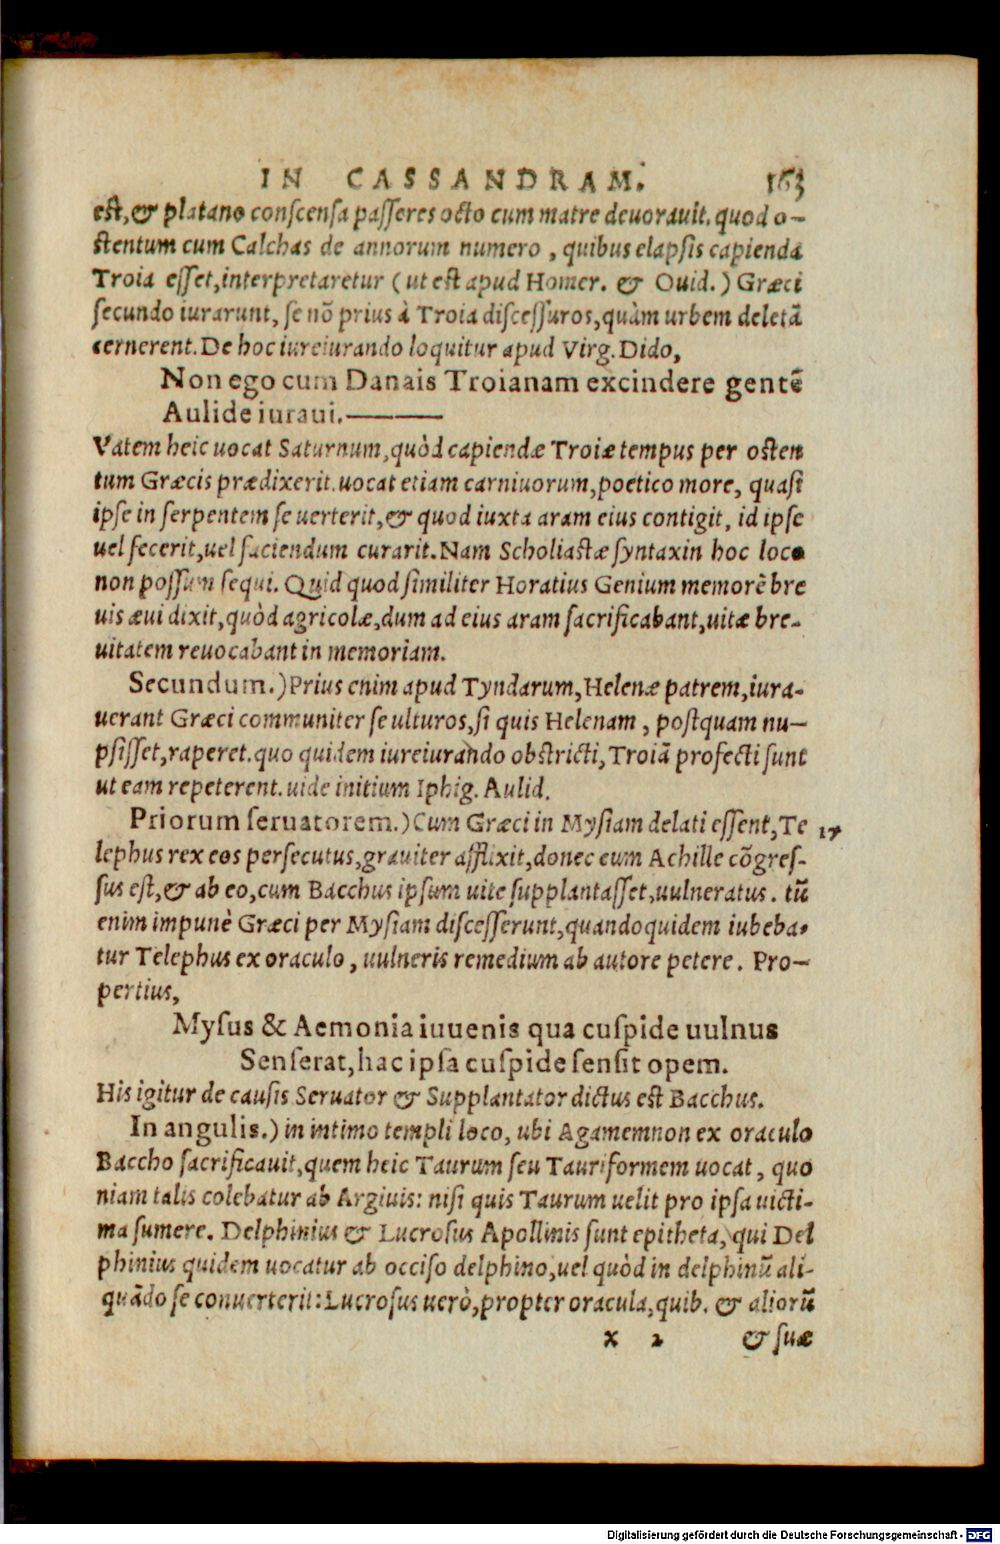 IN CASSANDRAM. 163
est, & platano conscensa passeres octo cum matre deuorauit. quod o-
stentum cum Calchas de annorum numero, quibus elapsis capienda
Troia esset, interpretaretur (ut est apud Homer. & Ouid.) Græci
secundo iurarunt, se nō prius à Troia discessuros, quàm urbem deletā
cernerent. De hoc iureiurando loquitur apud Virg. Dido,
Non ego cum Danais Troianam excindere gentē
Aulide iuraui.———
Vatem heic uocat Saturnum, quòd capiendæ Troiæ tempus per osten
tum Græcis prædixerit. uocat etiam carniuorum, poetico more, quasi
ipse in serpentem se uerterit, & quod iuxta aram eius contigit, id ipse
uel fecerit, uel faciendum curarit. Nam Scholiastæ syntaxin hoc loco
non possum sequi. Quid quod similiter Horatius Genium memorē bre
uis æui dixit, quòd agricolæ, dum ad eius aram sacrificabant, uitæ bre-
uitatem reuocabant in memoriam.
Secundum.) Prius enim apud Tyndarum, Helenæ patrem, iura-
uerant Græci communiter se ulturos, si quis Helenam, postquam nu-
psisset, raperet. quo quidem iureiurando obstricti, Troiā profecti sunt
ut eam repeterent. uide initium Iphig. Aulid.
Priorum seruatorem.) Cum Græci in Mysiam delati essent, Te 17
lephus rex eos persecutus, grauiter afflixit, donec cum Achille cōgres-
sus est, & ab eo, cum Bacchus ipsum uite supplantasset, uulneratus. tū
enim impunè Græci per Mysiam discesserunt, quandoquidem iubeba-
tur Telephus ex oraculo, uulneris remedium ab autore petere. Pro-
pertius,
Mysus & Aemonia iuuenis qua cuspide uulnus
Senserat, hac ipsa cuspide sensit opem.
His igitur de causis Seruator & Supplantator dictus est Bacchus.
In angulis.) in intimo templi loco, ubi Agamemnon ex oraculo
Baccho sacrificauit, quem heic Taurum seu Tauriformem uocat, quo
niam talis colebatur ab Argiuis: nisi quis Taurum uelit pro ipsa uicti-
ma sumere. Delphinius & Lucrosus Apollinis sunt epitheta, qui Del
phinius quidem uocatur ab occiso delphino, uel quòd in delphinū ali-
quādo se conuerterit: Lucrosus uerò, propter oracula, quib. & aliorū
x 2 & suæ
Digitalisierung gefördert durch die Deutsche Forschungsgemeinschaft - DFG